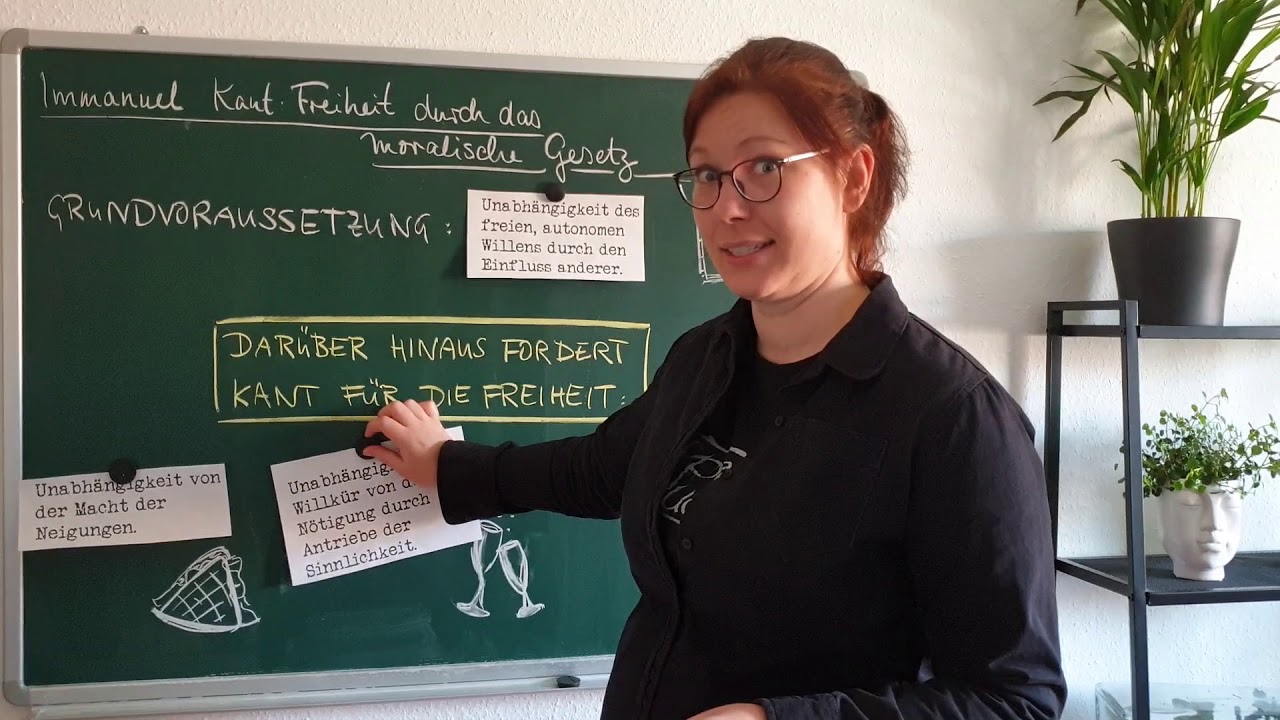 Immanuel Kant: Freiheit durch das
moralische Gesetz
GRUNDVORAUSSETZUNG:
Unabhängigkeit des
freien, autonomen
Willens durch den
Einfluss anderer.
DARÜBER HINAUS FORDERT
KANT FÜR DIE FREIHEIT:
Unabhängigkeit von
der Macht der
Neigungen.
Willkür von
Nötigung durch
Antriebe der
Sinnlichkeit.